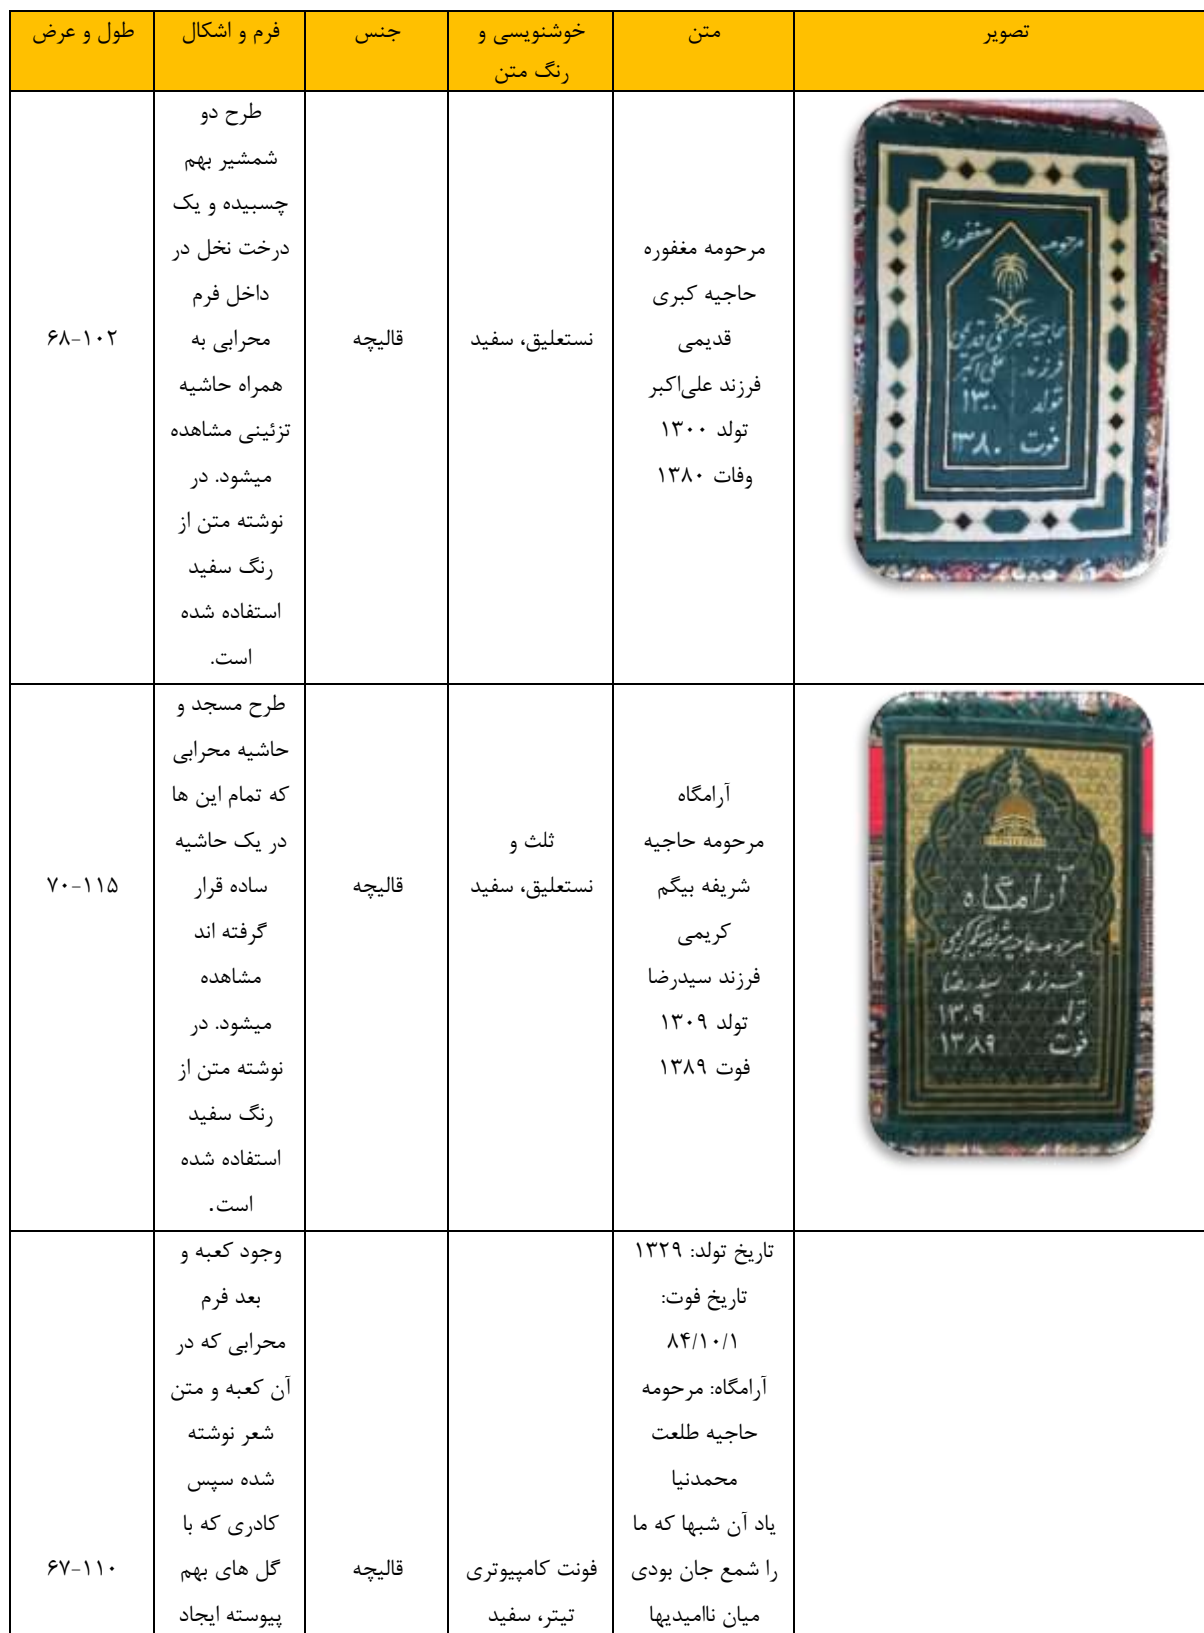 تصویر
متن
خوشنویسی و
رنگ متن
جنس
فرم و اشکال
طول و عرض
مرحومه مغفوره
حاجیه کبری قدیمی
فرزند علی اکبر
تولد ۱۳۰۰
فوت ۱۳۸۰
مرحومه مغفوره
حاجیه کبری
قدیمی
فرزند علی‌اکبر
تولد ۱۳۰۰
وفات ۱۳۸۰
نستعلیق، سفید
قالیچه
طرح دو
شمشیر بهم
چسبیده و یک
درخت نخل در
داخل فرم
محرابی به
همراه حاشیه
تزئینی مشاهده
میشود. در
نوشته متن از
رنگ سفید
استفاده شده
است.
۶۸-۱۰۲
آرامگاه
مرحومه حاجیه شریفه بیگم کریمی
فرزند سیدرضا
تولد ۱۳۰۹
فوت ۱۳۸۹
آرامگاه
مرحومه حاجیه
شریفه بیگم
کریمی
فرزند سیدرضا
تولد ۱۳۰۹
فوت ۱۳۸۹
ثلث و
نستعلیق، سفید
قالیچه
طرح مسجد و
حاشیه محرابی
که تمام این ها
در یک حاشیه
ساده قرار
گرفته اند
مشاهده
میشود. در
نوشته متن از
رنگ سفید
استفاده شده
است.
۷۰-۱۱۵
تاریخ تولد: ۱۳۲۹
تاریخ فوت:
۸۴/۱۰/۱
آرامگاه: مرحومه
حاجیه طلعت
محمدنیا
یاد آن شبها که ما
را شمع جان بودی
میان ناامیدیها
فونت کامپیوتری
تیتر، سفید
قالیچه
وجود کعبه و
بعد فرم
محرابی که در
آن کعبه و متن
شعر نوشته
شده سپس
کادری که با
گل های بهم
پیوسته ایجاد
۶۷-۱۱۰